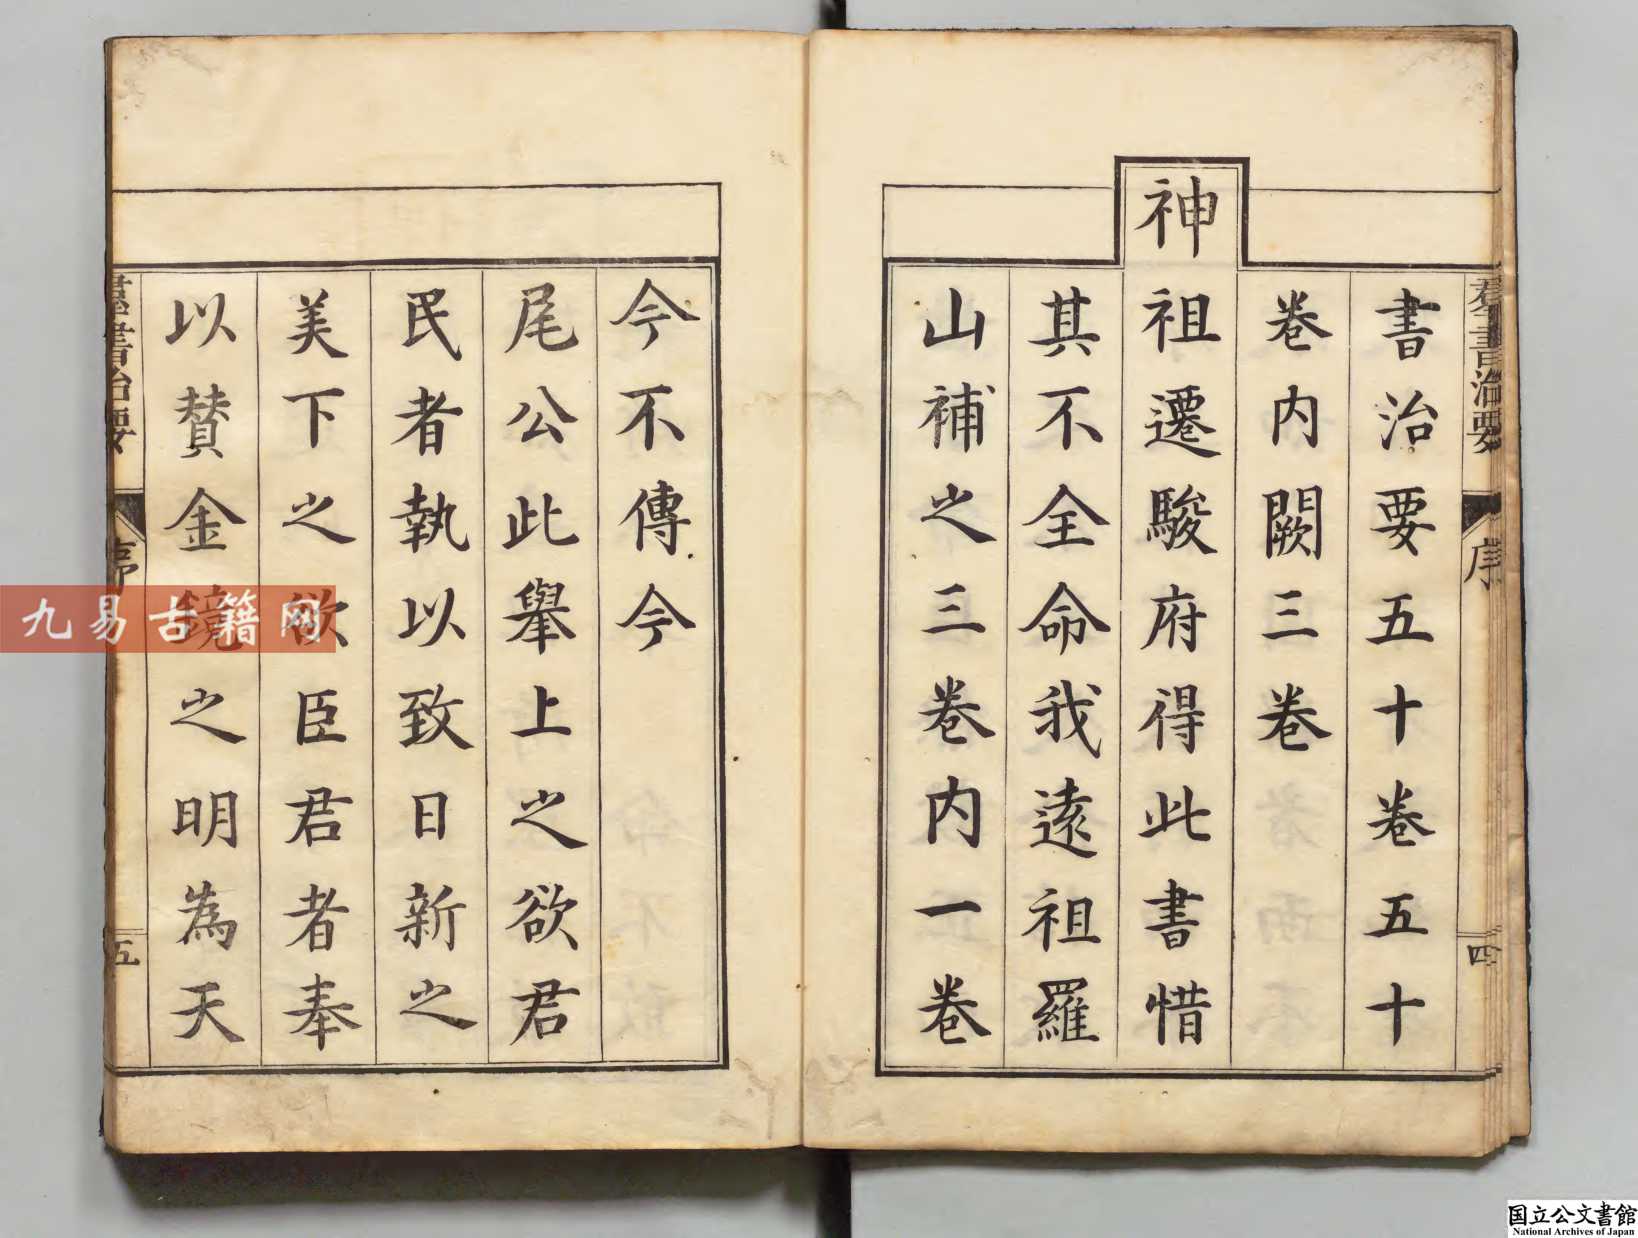 羣書治要
序
四
書治要五十卷五十
卷内闕三卷
神祖遷駿府得此書惜
其不全命我遠祖羅
山補之三卷内一卷
今不傳今
尾公此舉上之欲君
民者執以致日新之
美下之欲臣君者奉
以賛金鏡之明為天
羣書治要
序
五
九易古籍网
国立公文書館
National Archives of Japan